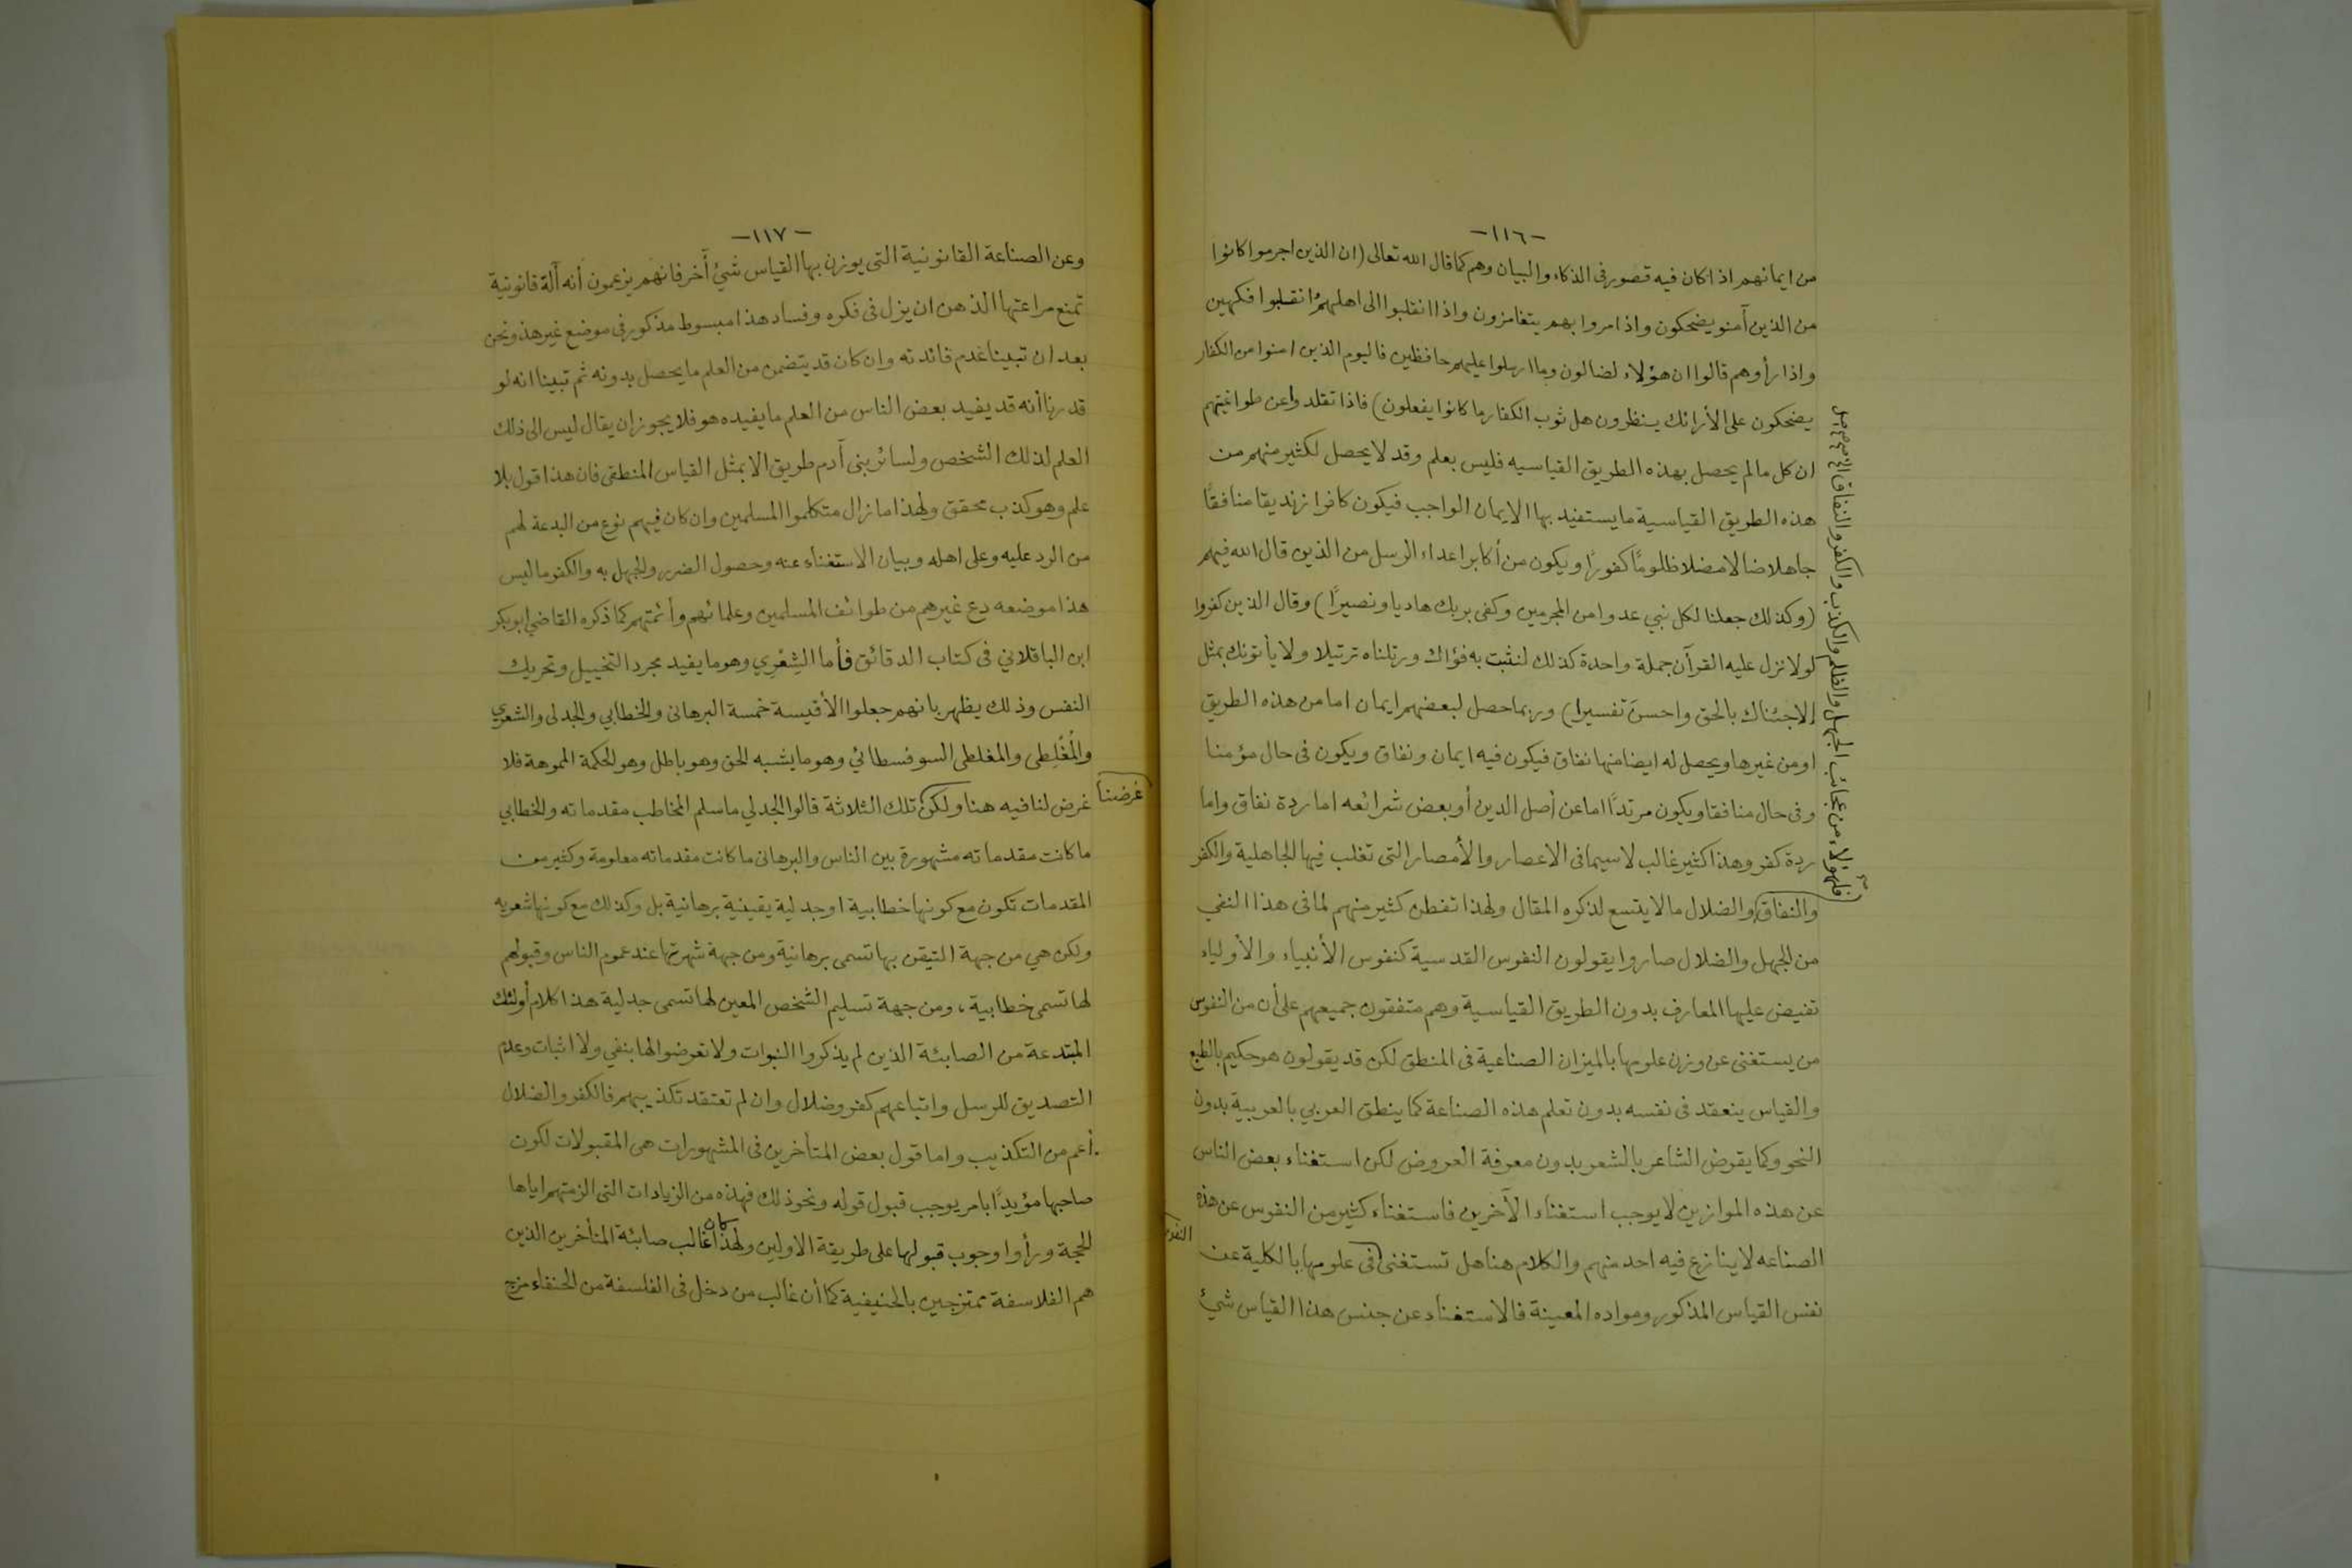 -١١٦-
من ايمانهم اذا كان فيه قصور فى الذكاء والبيان وهم كما قال الله تعالى (ان الذين اجرموا كانوا
من الذين آمنو يضحكون واذا مروا بهم يتغامزون واذا انقلبوا الى اهلهمُ انقلبوا فكهين
واذا رأوهم قالوا ان هؤلاء لضالون وما ارسلوا عليهم حافظين فاليوم الذين امنوا من الكفار
يضحكون على الأرائك ينظرون هل ثوب الكفار ما كانوا يفعلون) فاذا تقلدوا عن طواغيتهم
ان كل ما لم يحصل بهذه الطريق القياسيه فليس بعلم وقد لا يحصل لكثير منهم من
هذه الطريق القياسية ما يستفيد بها الايمان الواجب فيكون كافرا زنديقا منافقًا
جاهلا ضالا مضلا ظلومًا كفورًا ويكون من أكابر اعداء الرسل من الذين قال الله فيهم
(وكذلك جعلنا لكل نبي عدوا من المجرمين وكفى بربك هاديا ونصيرًا) وقال الذين كفروا
لولا نزل عليه القرآن جملة واحدة كذلك لنثبت به فؤاك ورتلناه ترتيلا ولا يأتونك بمثل
إلا جئناك بالحق واحسنَ تفسيرا) وربما حصل لبعضهم ايمان اما من هذه الطريق
او من غيرها ويحصل له ايضا منها نفاق فيكون فيه ايمان ونفاق ويكون فى حال مؤمنا
وفى حال منافقا ويكون مرتدًا اما عن أصل الدين أو بعض شرائعه اما ردة نفاق واما
ردة كفر وهذا كثير غالب لا سيما فى الاعصار والأمصار التى تغلب فيها الجاهلية والكفر
والنفاق والضلال ما لا يتسع لذكره المقال ولهذا تفطن كثير منهم لما فى هذا النفي
من الجهل والضلال صاروا يقولون النفوس القدسية كنفوس الأنبياء والأولياء
تفيض عليها المعارف بدون الطريق القياسية وهم متفقون جميعهم على أن من النفوس
من يستغنى عن وزن علومها بالميزان الصناعية فى المنطق لكن قد يقولون هو حكيم بالطبع
والقياس ينعقد فى نفسه بدون تعلم هذه الصناعة كما ينطق العربي بالعربية بدون
النحو وكما يقرض الشاعر بالشعر بدون معرفة العروض لكن استغناء بعض الناس
عن هذه الموازين لا يوجب استغناء الآخرين فاستغناء كثير من النفوس عن هذه
الصناعه لا ينازع فيه احد منهم والكلام هنا هل تستغنى فى علومها بالكلية عن
نفس القياس المذكور ومواده المعينة فالاستغناء عن جنس هذا القياس شئ
فلهؤلاء من عجائب الجهل والظلم والكذب والكفر والنفاق
النفوس
-١١٧-
وعن الصناعة القانونية التى يوزن بها القياس شئ آخر فانهم يزعمون أنه آلة قانونية
تمنع مراعتها الذهن ان يزل فى فكره وفساد هذا مبسوط مذكور فى موضع غير هذ ونحن
بعد ان تبينا عدم فائدته وان كان قد يتضمن من العلم ما يحصل بدونه ثم تبينا انه لو
قدرنا أنه قد يفيد بعض الناس من العلم ما يفيده هو فلا يجوز ان يقال ليس الى ذلك
العلم لذلك الشخص ولسائر بنى آدم طريق الا بمثل القياس المنطقى فان هذا قول بلا
علم وهو كذب محقق ولهذا ما زال متكلموا المسلمين وان كان فيهم نوع من البدعة لهم
من الرد عليه وعلى اهله وبيان الاستغناء عنه وحصول الضرر والجهل به والكفر ما ليس
هذا موضعه دع غيرهم من طوائف المسلمين وعلمائهم وأئمتهم كما ذكره القاضي ابو بكر
ابن الباقلاني فى كتاب الدقائق فأما الشِعْري وهو ما يفيد مجرد التخييل وتحريك
النفس وذلك يظهر بانهم جعلوا الأقيسة خمسة البرهانى والخطابي والجدلى والشعري
والمُغْلِطى والمغلطى السوفسطائي وهو ما يشبه الحق وهو باطل وهو الحكمة المموهة فلا
غرض لنا فيه هنا ولكن تلك الثلاثة قالوا الجدلي ما سلم المخاطب مقدماته والخطابي
ما كانت مقدماته مشهورة بين الناس والبرهانى ما كانت مقدماته معلومة وكثير من
المقدمات تكون مع كونها خطابية او جدلية يقينية برهانية بل وكذلك مع كونها شعريه
ولكن هي من جهة التيقن بها تسمى برهانية ومن جهة شهرتها عند عموم الناس وقبولهم
لها تسمى خطابية، ومن جهة تسليم الشخص المعين لها تسمى جدلية هذا كلام أولئك
المبتدعة من الصابئة الذين لم يذكروا النبوات ولا تعرضوا لها بنفي ولا اثبات وعدم
التصديق للرسل واتباعهم كفر وضلال وان لم تعتقد تكذيبهم فالكفر والضلال
أعم من التكذيب واما قول بعض المتأخرين فى المشهورات هى المقبولات لكون
صاحبها مؤيدًا بامر يوجب قبول قوله ونحو ذلك فهذه من الزيادات التى الزمتهم اياها
الحجة ورأوا وجوب قبولها على طريقة الاولين ولهذا كان غالب صابئة المتأخرين الذين
هم الفلاسفة ممتزجين بالحنيفية كما أن غالب من دخل فى الفلسفة من الحنفاء مزج
غرضنا